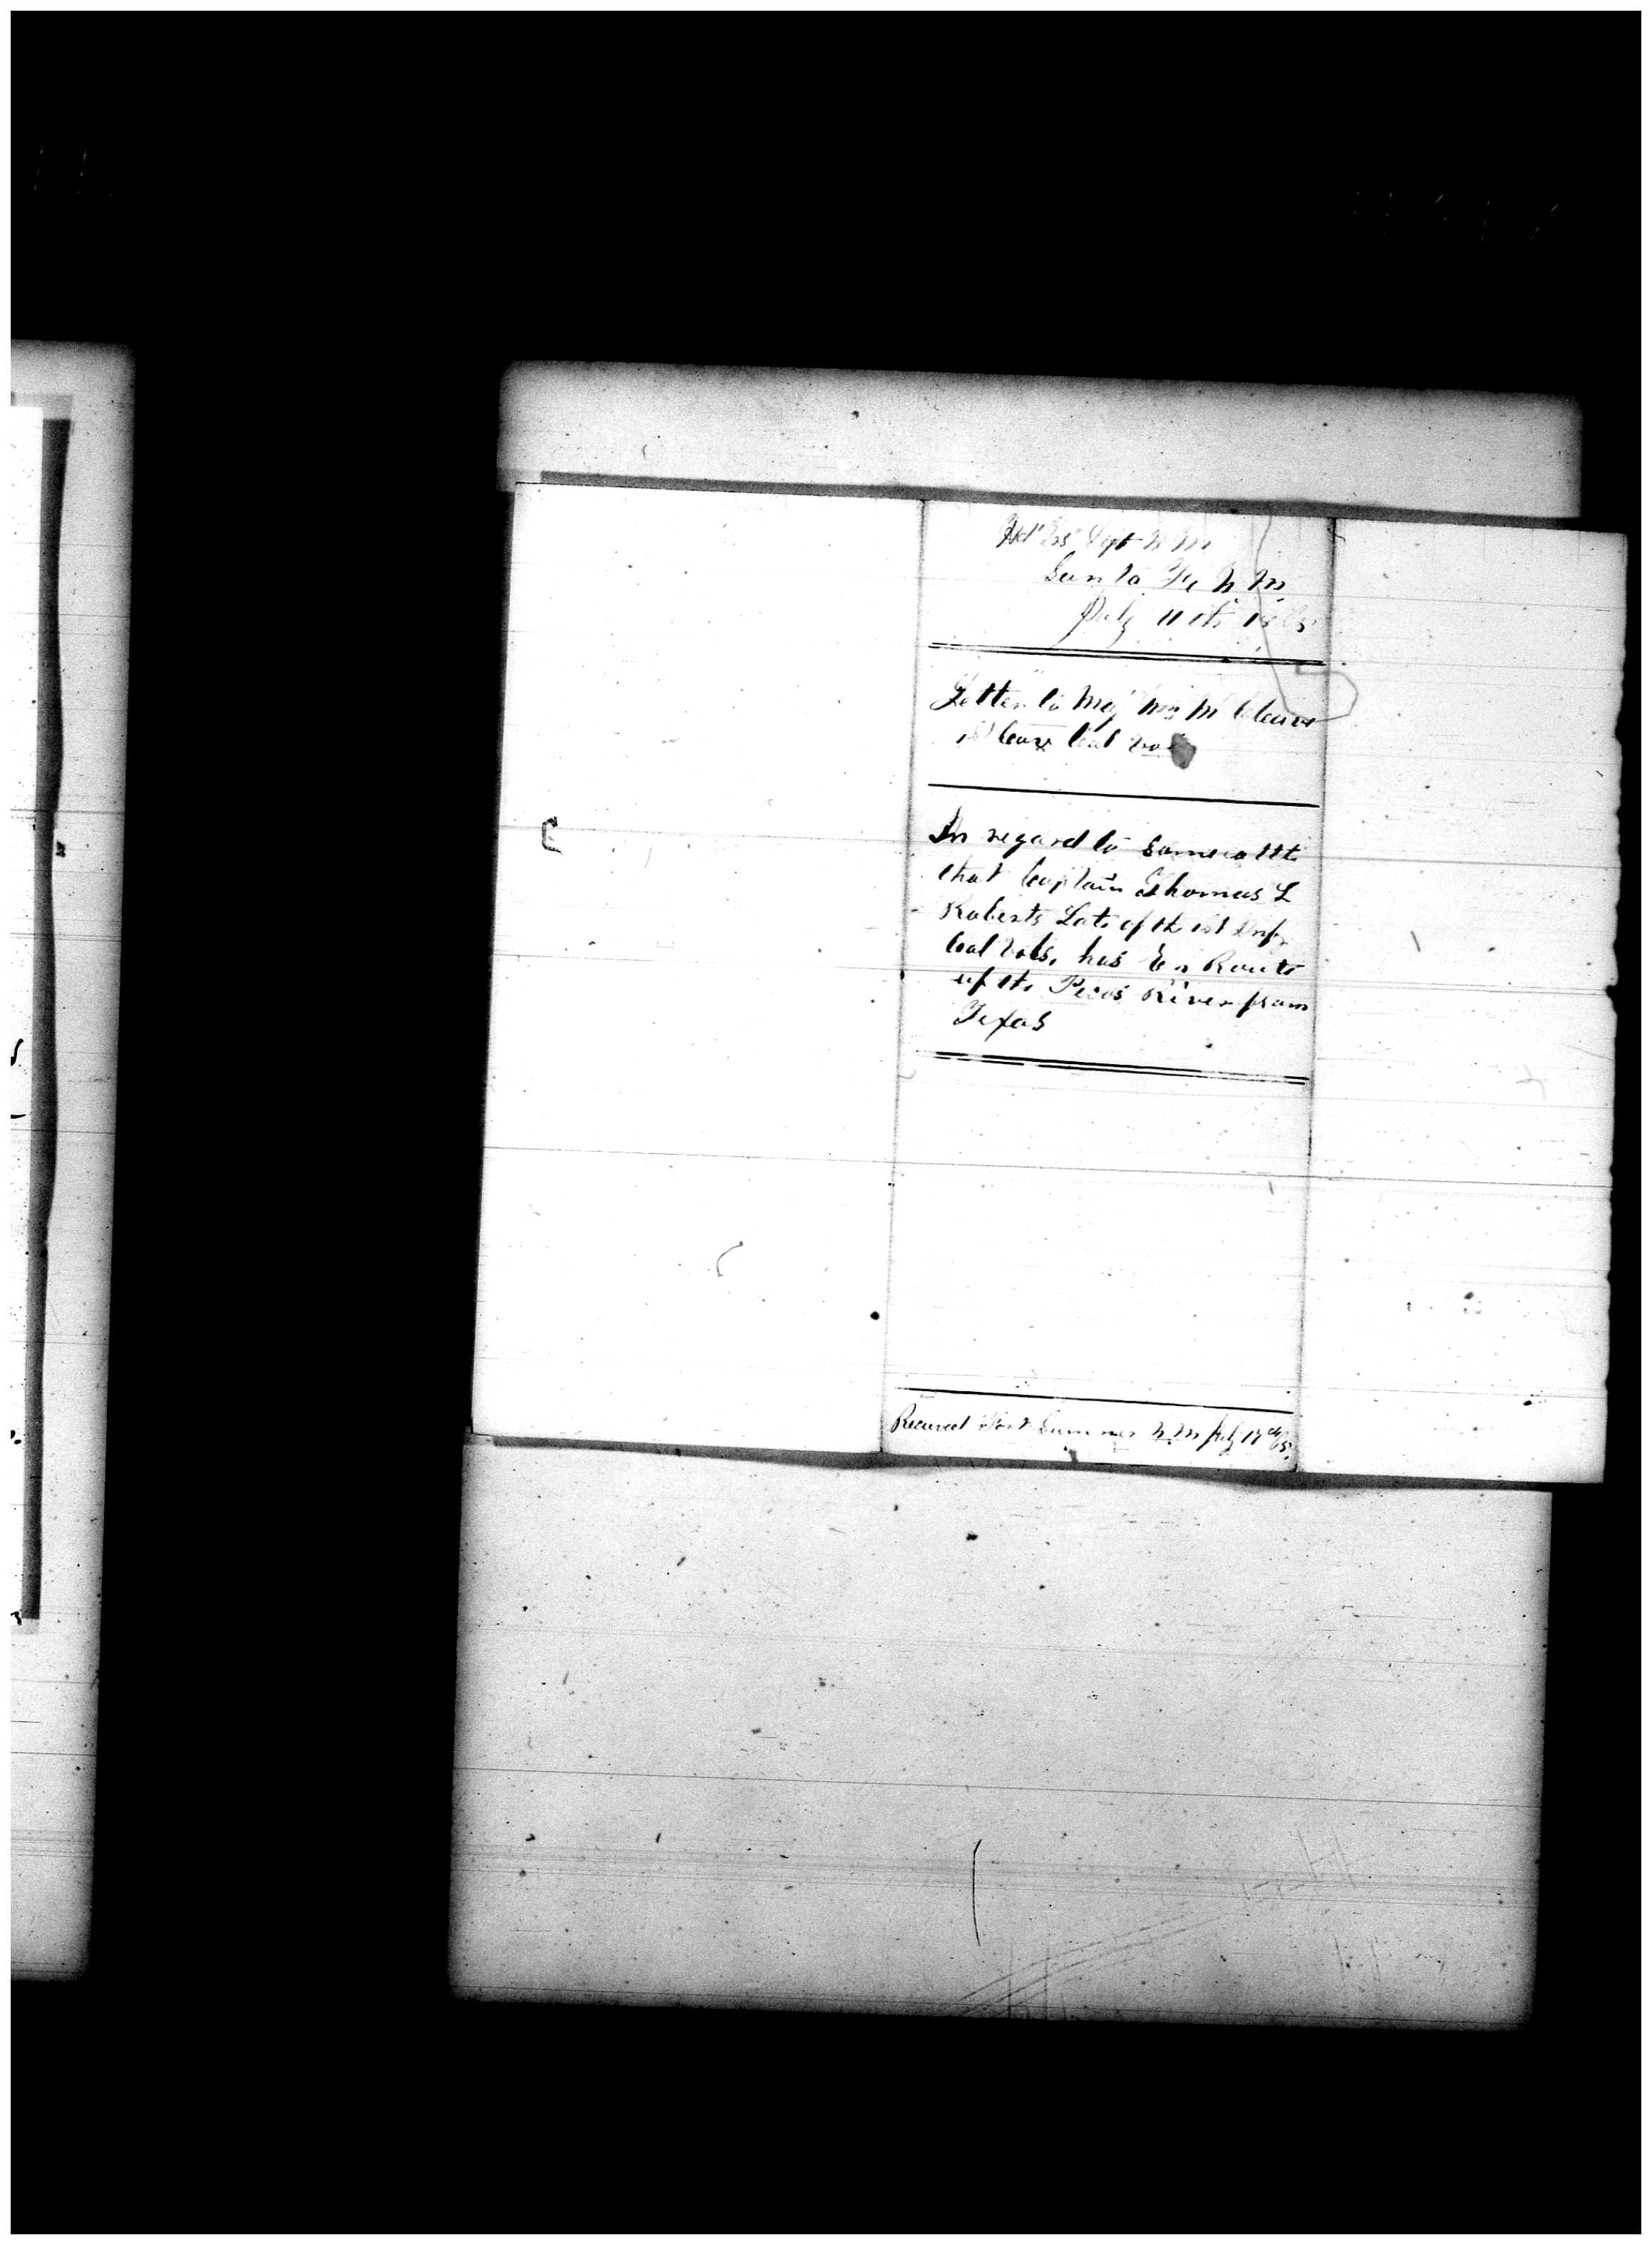 Hd Qrs Dept N M
Santa Fe, N. M.
July 11th 1865
Letter to Maj Wm McCleave
1st Cavy Cal Vols
In regard to some cattle
that Captain Thomas L
Roberts Late of the 1st Infy
Cal Vols, has En Route
up the Pecos River from
Texas
Received Fort Sumner N. M July 17th/65.